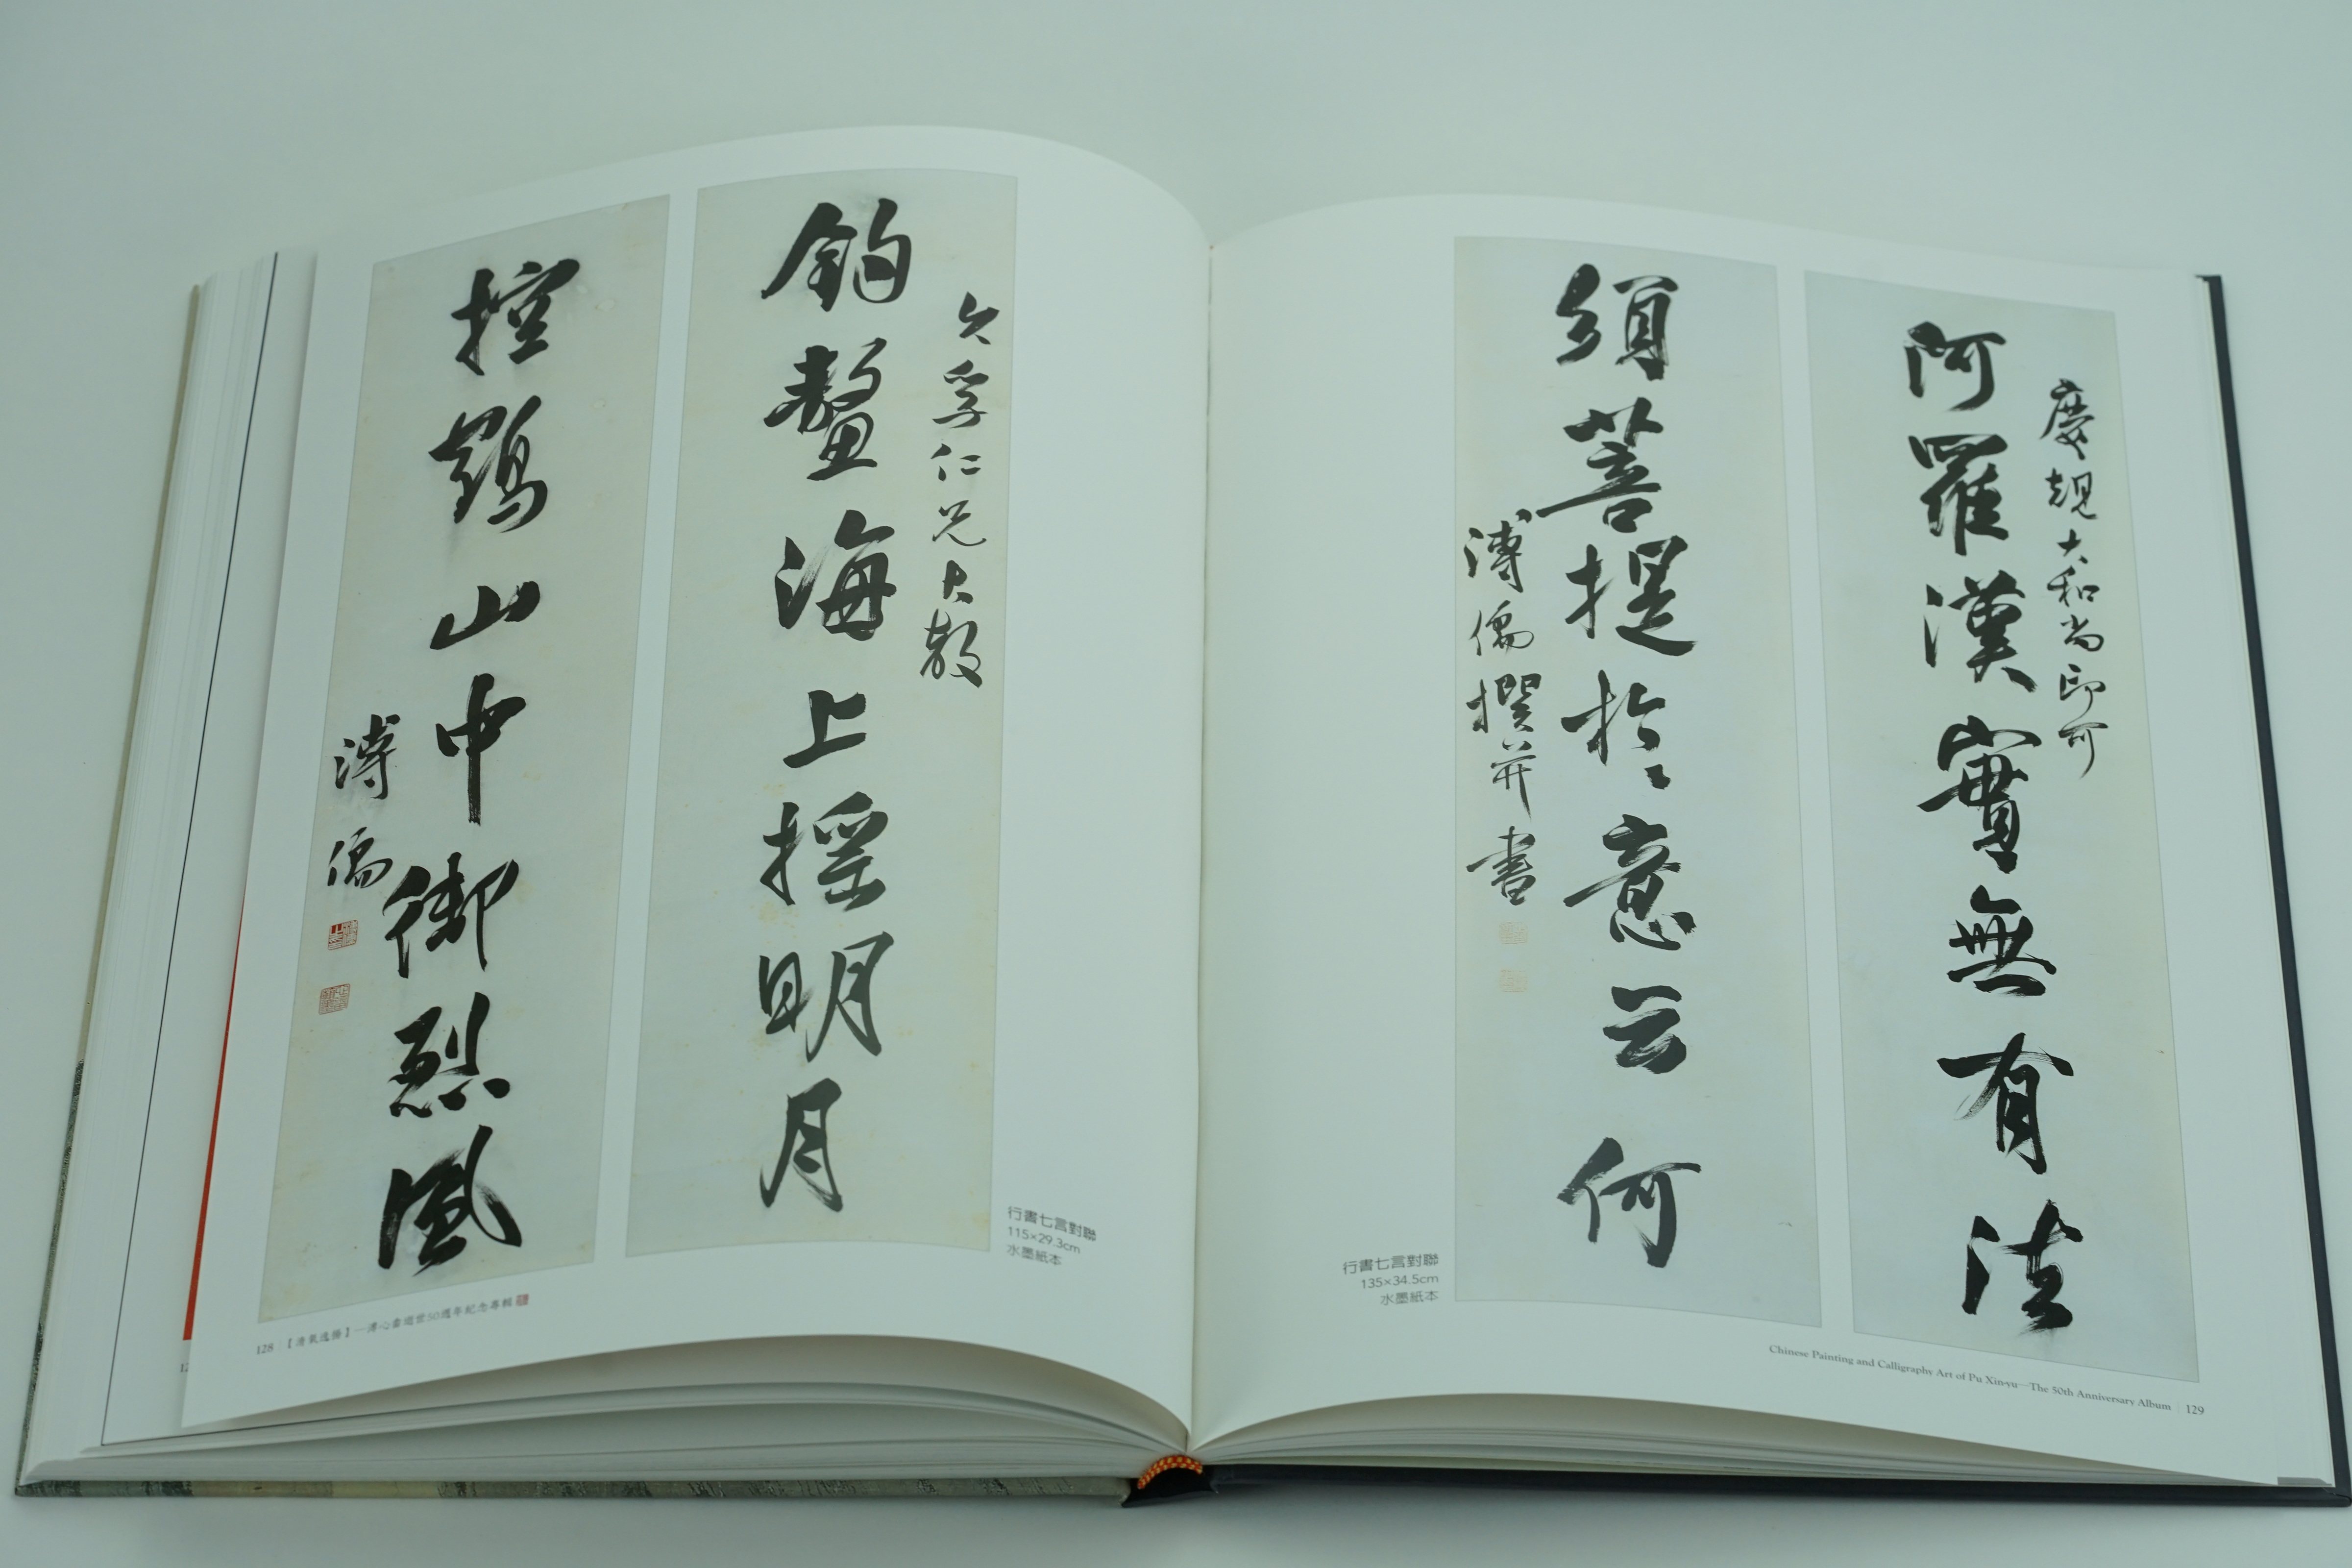 孚仁兄大教
釣鼇海上搖明月
控鶴山中御烈風
溥儒
行書七言對聯
115×29.3cm
水墨紙本
128 【清氣逸揚】—溥心畬逝世50週年紀念專輯
慶規大和尚印可
阿羅漢實無有法
須菩提於意云何
溥儒撰并書
行書七言對聯
135×34.5cm
水墨紙本
Chinese Painting and Calligraphy Art of Pu Xin-yu—The 50th Anniversary Album 129